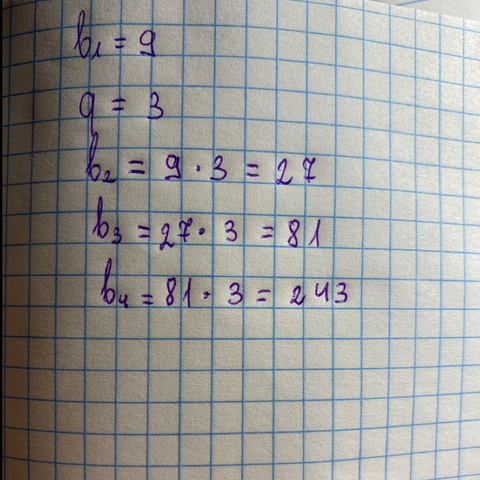 b₁ = 9
q = 3
b₂ = 9 · 3 = 27
b₃ = 27 · 3 = 81
b₄ = 81 · 3 = 243